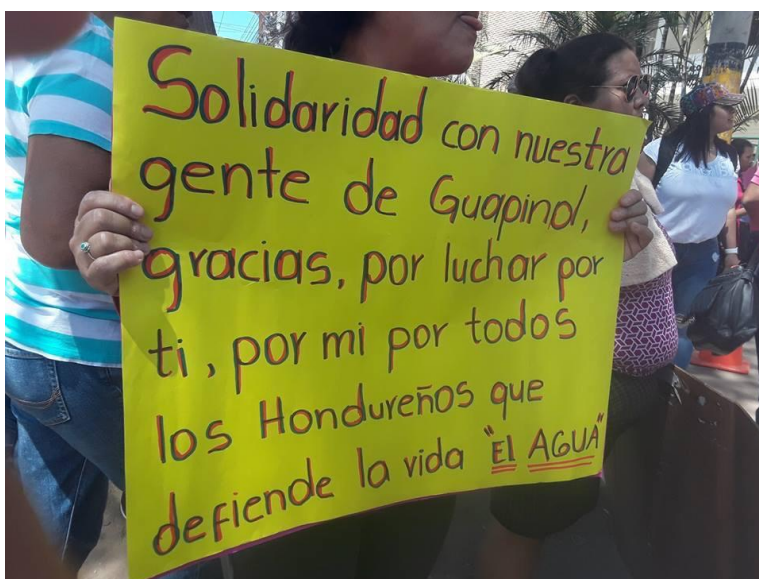 Solidaridad con nuestra
gente de Guapinol,
gracias, por luchar por
ti, por mi por todos
los Hondureños que
defiende la vida "El AGUA"